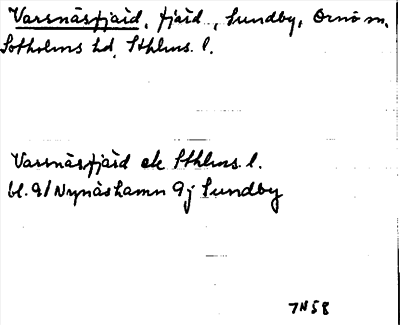 Varsnäsfjärd, fjärd, Sundby, Ornö sn.
Sotholms hd, Sthlms l.
Varsnäsfjärd ek Sthlms l.
bl. 91 Nynäshamn 9j Sundby
7N58